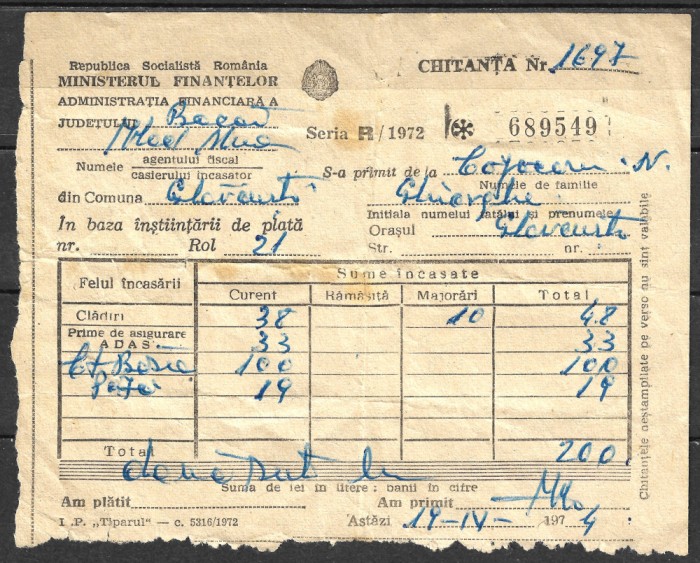 Republica Socialistă România
MINISTERUL FINANȚELOR
ADMINISTRAȚIA FINANCIARĂ A
JUDEȚULUI Bacău
CHITANȚA Nr. 1697
Seria R/1972 689549
Numele agentului fiscal
casierului încasator
din Comuna
S-a primit de la N.
Numele de familie
Gheorghe
Inițiala numelui tatălui și prenumele
În baza înștiințării de plată
nr. Rol 21
Orașul
Str. nr.
Felul încasării Sume încasate
Curent Rămășită Majorări Total
Clădiri 38 10 48
Prime de asigurare
ADAS 33 33
100 100
19 19
Total 200
două sute lei
Suma de lei în litere; banii în cifre
Am plătit Am primit
I.P. „Tiparul" — c. 5316/1972
Astăzi 19-IV- 1974
Chitanțele neștampilate pe verso nu sînt valabile